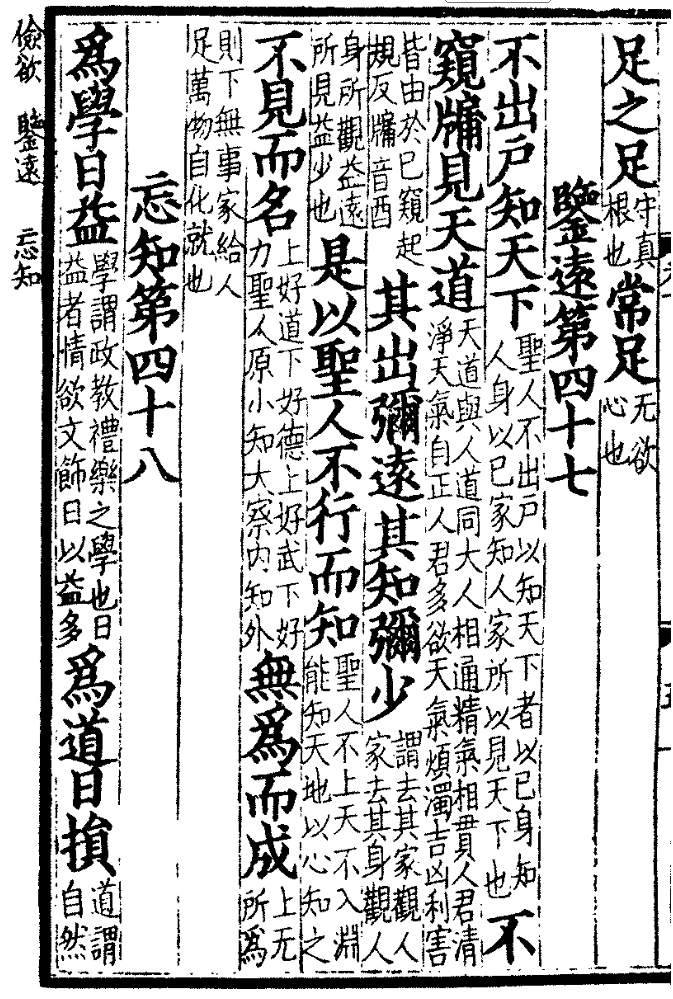 足之足守真根也常足无欲心也
鑒遠第四十七
不出戶知天下聖人不出戶以知天下者以已身知人身以已家知人家所以見天下也不
窺牖見天道天道與人道同大人相通精氣相貫人君清淨天氣自正人君多欲天氣煩濁吉凶利害
皆由於已窺起規反牖音酉其出彌遠其知彌少謂去其家觀人家去其身觀人
身所觀益遠所見益少也是以聖人不行而知聖人不上天不入淵能知天地以心知之
不見而名上好道下好德上好武下好力聖人原小知大察内知外無爲而成上无所爲
則下無事家給人足萬物自化就也
忘知第四十八
爲學日益學謂政教禮樂之學也日益者情欲文飾日以益多爲道日損道謂自然
儉欲 鑒遠 忘知